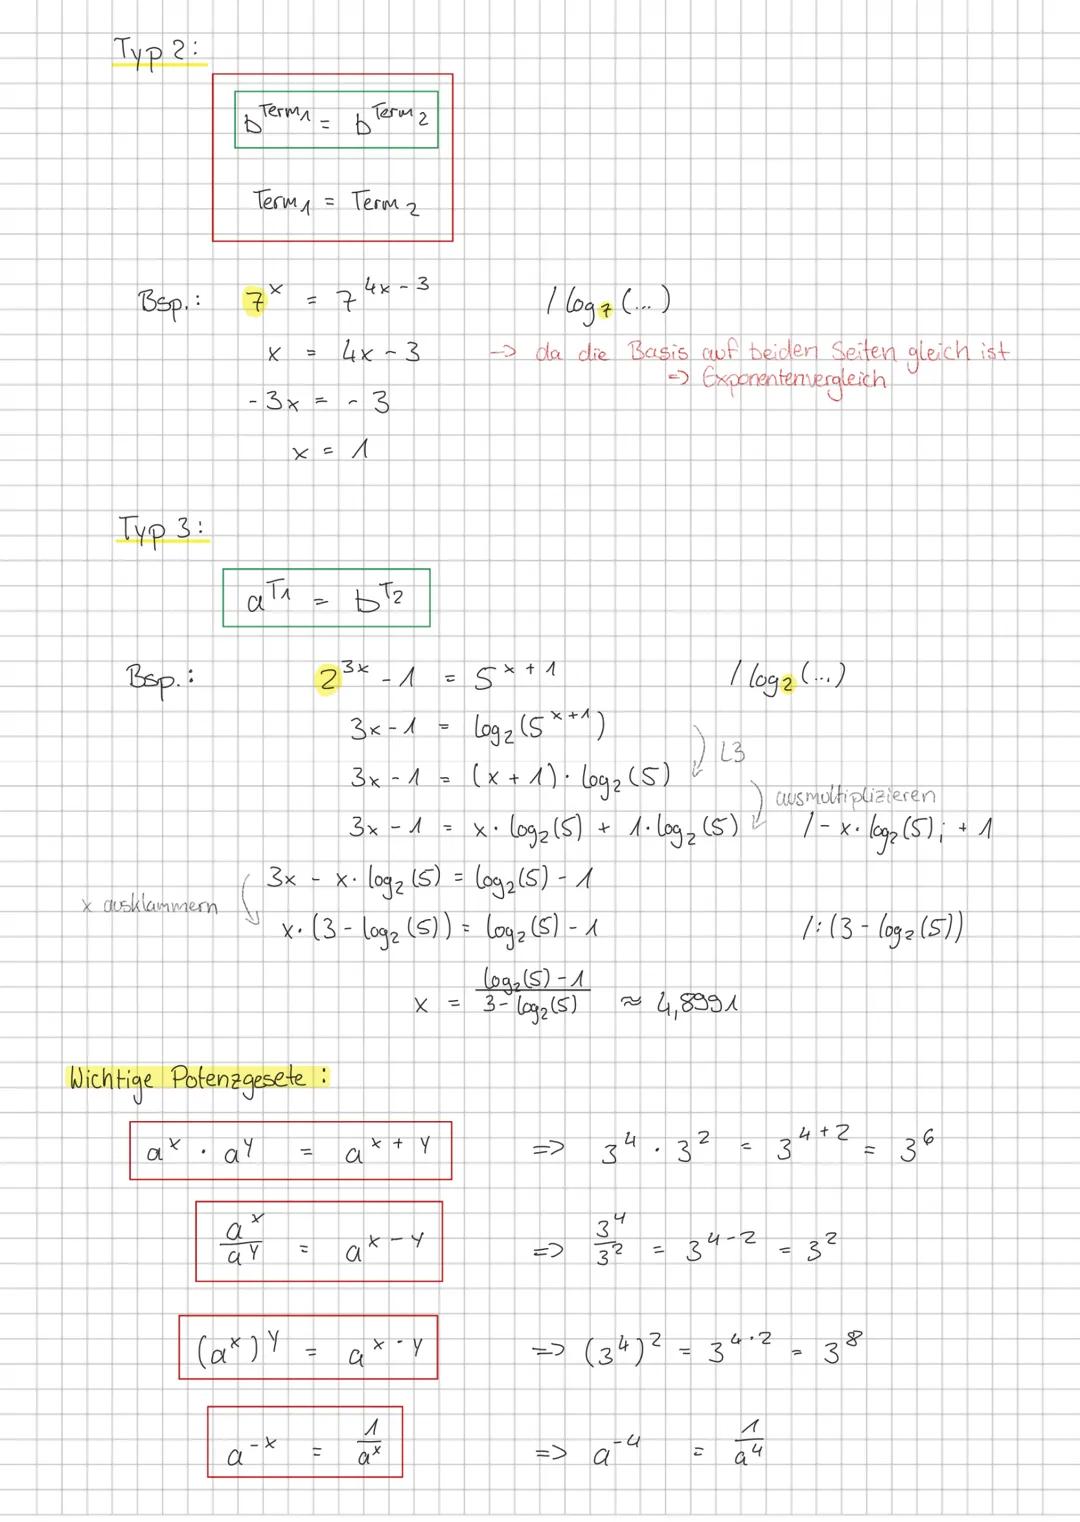 Typ 2:
b^Term1 = b^Term2
Term1 = Term2
Bsp.: 7^x = 7^(4x-3) / log7 (...)
x = 4x - 3 -> da die Basis auf beiden Seiten gleich ist
-3x = -3 => Exponentenvergleich
x = 1
Typ 3:
a^T1 = b^T2
Bsp.: 2^(3x-1) = 5^(x+1) / log2 (...)
3x - 1 = log2(5^(x+1))
L3
3x - 1 = (x + 1) · log2(5)
ausmultiplizieren
3x - 1 = x · log2(5) + 1 · log2(5) / - x · log2(5) ; + 1
3x - x · log2(5) = log2(5) - 1
x ausklammern
x · (3 - log2(5)) = log2(5) - 1 / : (3 - log2(5))
x = (log2(5) - 1)/(3 - log2(5)) ≈ 4,8991
Wichtige Potenzgesete :
a^x · a^y = a^(x+y) => 3^4 · 3^2 = 3^(4+2) = 3^6
a^x/a^y = a^(x-y) => 3^4/3^2 = 3^(4-2) = 3^2
(a^x)^y = a^(x·y) => (3^4)^2 = 3^(4·2) = 3^8
a^-x = 1/a^x => a^-4 = 1/a^4